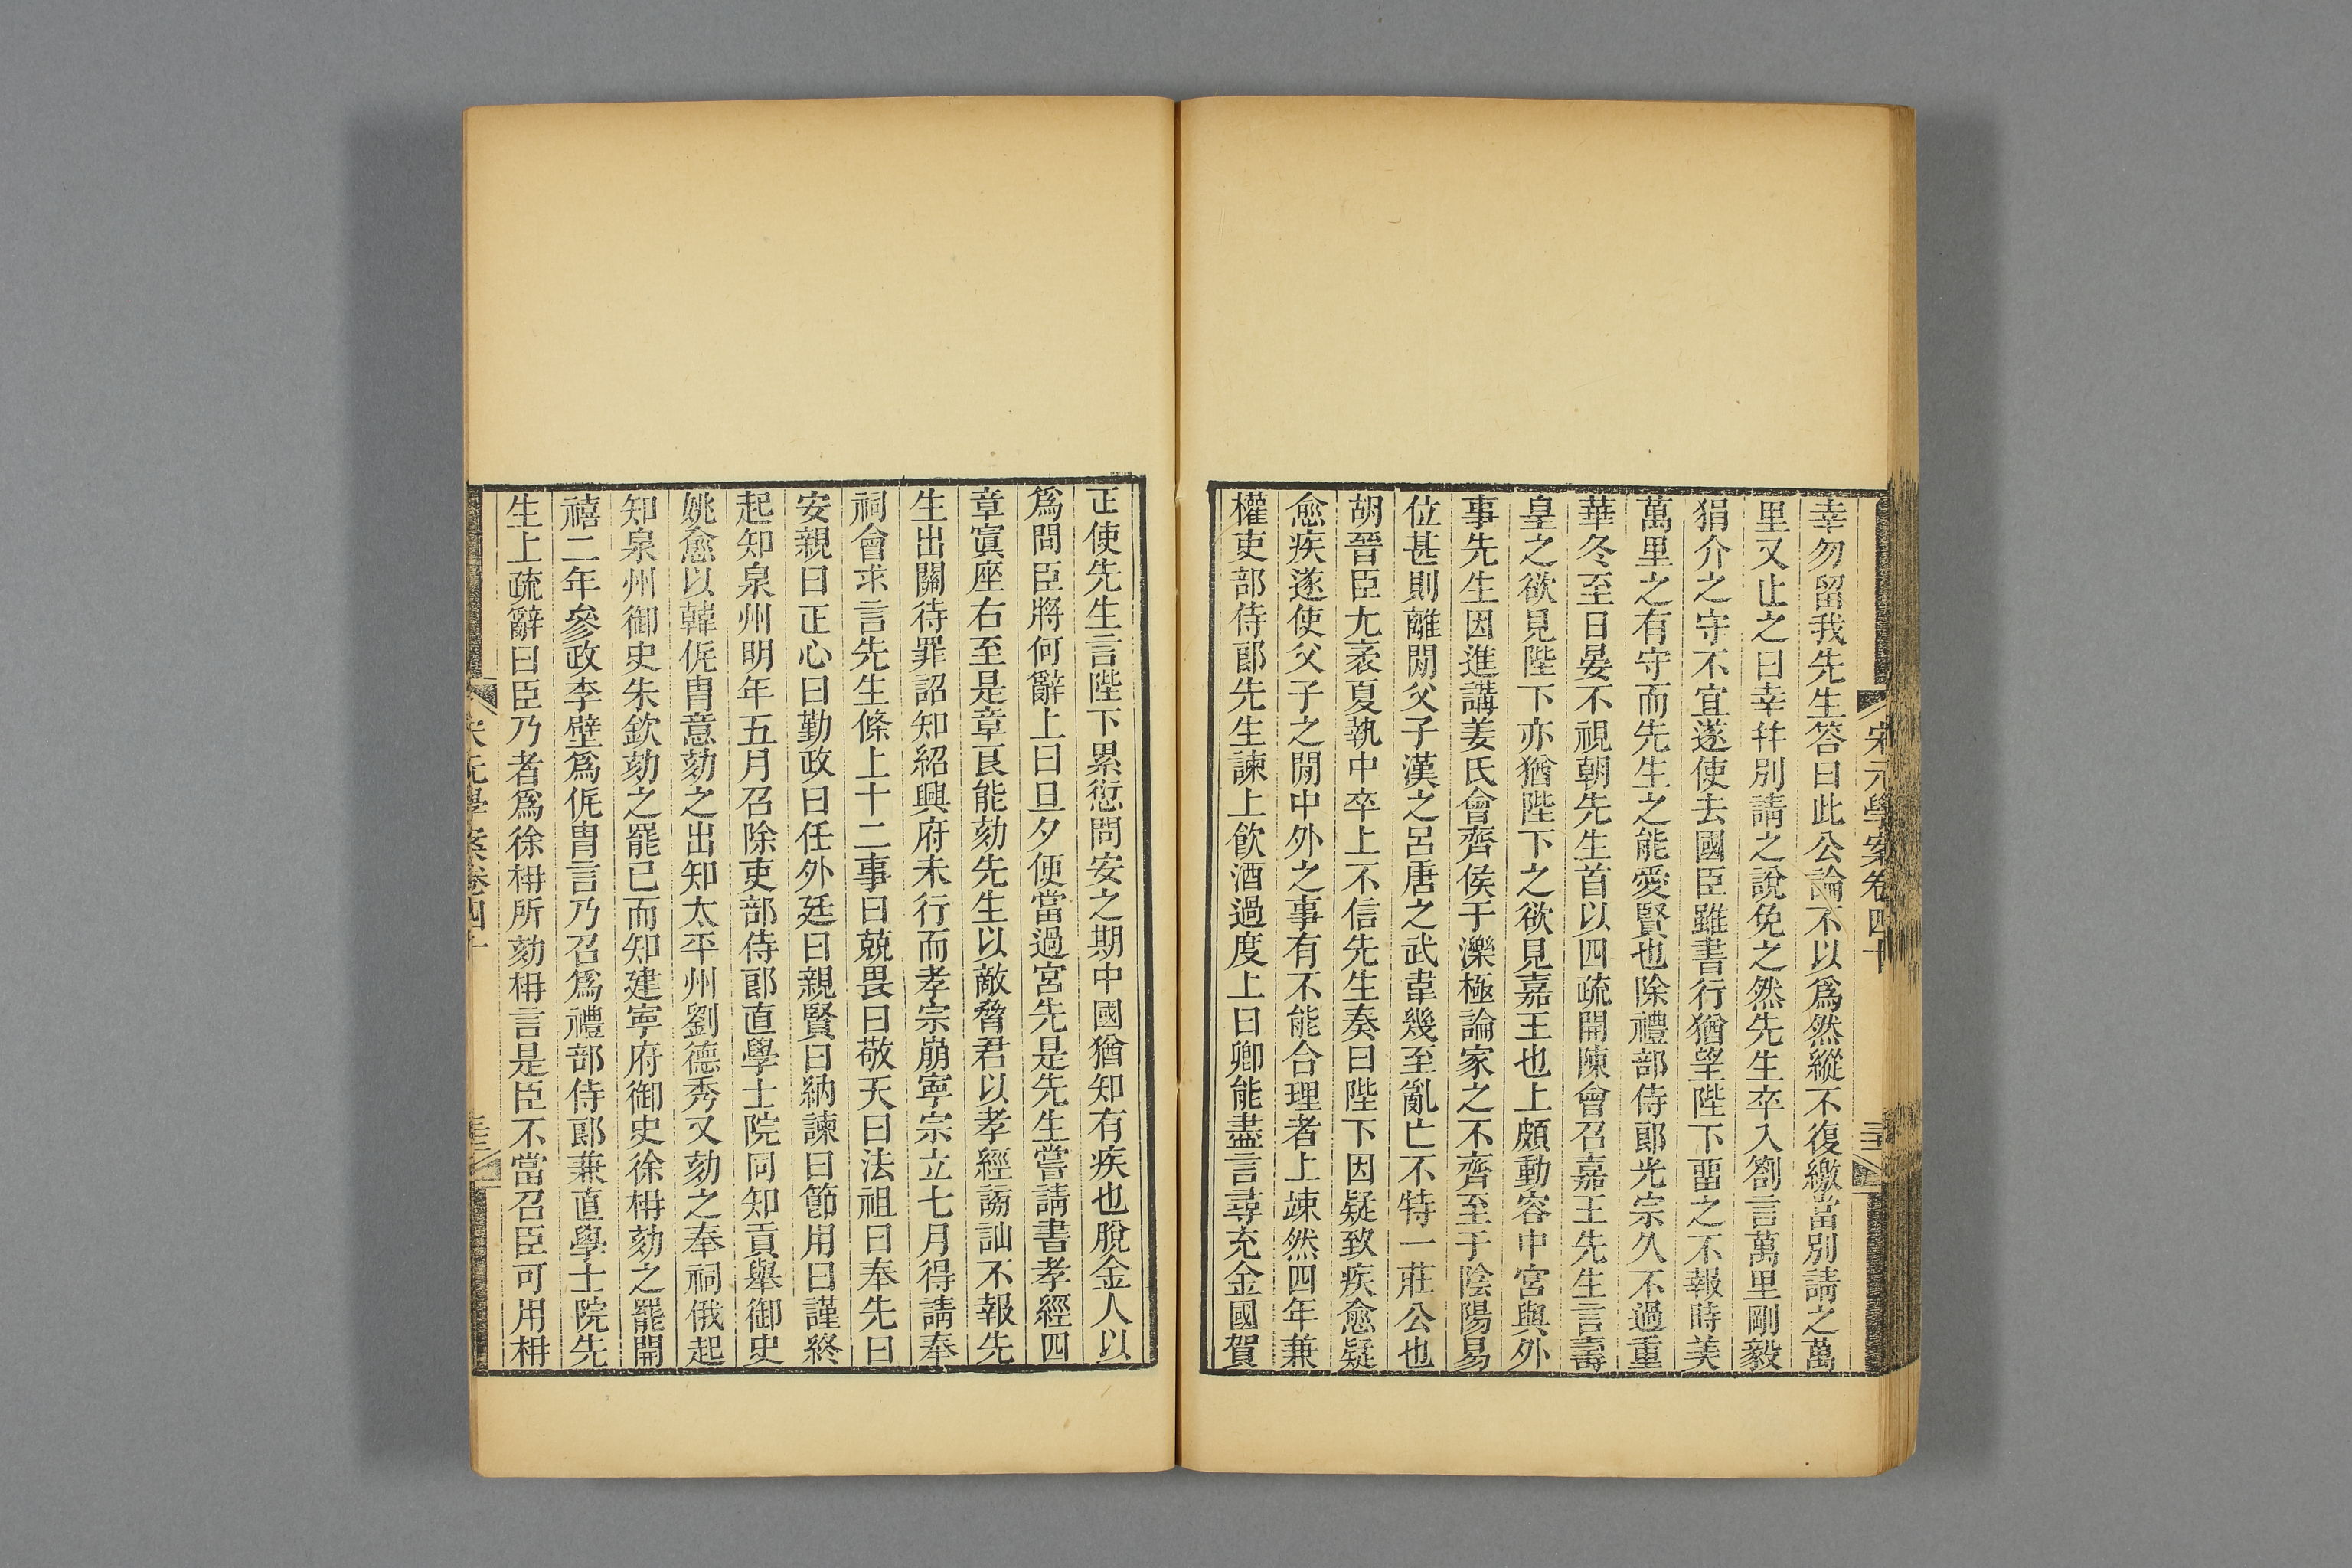 宋元學案卷四十
幸勿留我先生答曰此公論不以爲然縱不復繳當別請之萬
里又止之曰幸幷別請之說免之然先生卒入劄言萬里剛毅
狷介之守不宜遂使去國臣雖書行猶望陛下畱之不報時美
萬里之有守而先生之能愛賢也除禮部侍郎光宗久不過重
華冬至日晏不視朝先生首以四疏開陳會召嘉王先生言壽
皇之欲見陛下亦猶陛下之欲見嘉王也上頗動容中宮與外
事先生因進講姜氏會齊侯于濼極論家之不齊至于陰陽易
位甚則離閒父子漢之呂唐之武韋幾至亂亡不特一莊公也
胡晉臣尢袤夏執中卒上不信先生奏曰陛下因疑致疾愈疑
愈疾遂使父子之閒中外之事有不能合理者上竦然四年兼
權吏部侍郎先生諫上飲酒過度上曰卿能盡言尋充金國賀
正使先生言陛下累愆問安之期中國猶知有疾也脫金人以
爲問臣將何辭上曰旦夕便當過宮先是先生嘗請書孝經四
章寘座右至是章良能劾先生以敵脅君以孝經謗訕不報先
生出關待罪詔知紹興府未行而孝宗崩寧宗立七月得請奉
祠會求言先生條上十二事曰兢畏曰敬天曰法祖曰奉先曰
安親曰正心曰勤政曰任外廷曰親賢曰納諫曰節用曰謹終
起知泉州明年五月召除吏部侍郎直學士院同知貢舉御史
姚愈以韓侂冑意劾之出知太平州劉德秀又劾之奉祠俄起
知泉州御史朱欽劾之罷已而知建寧府御史徐枏劾之罷開
禧二年參政李壁爲侂冑言乃召爲禮部侍郎兼直學士院先
生上疏辭曰臣乃者爲徐枏所劾枏言是臣不當召臣可用枏
宋元學案卷四十